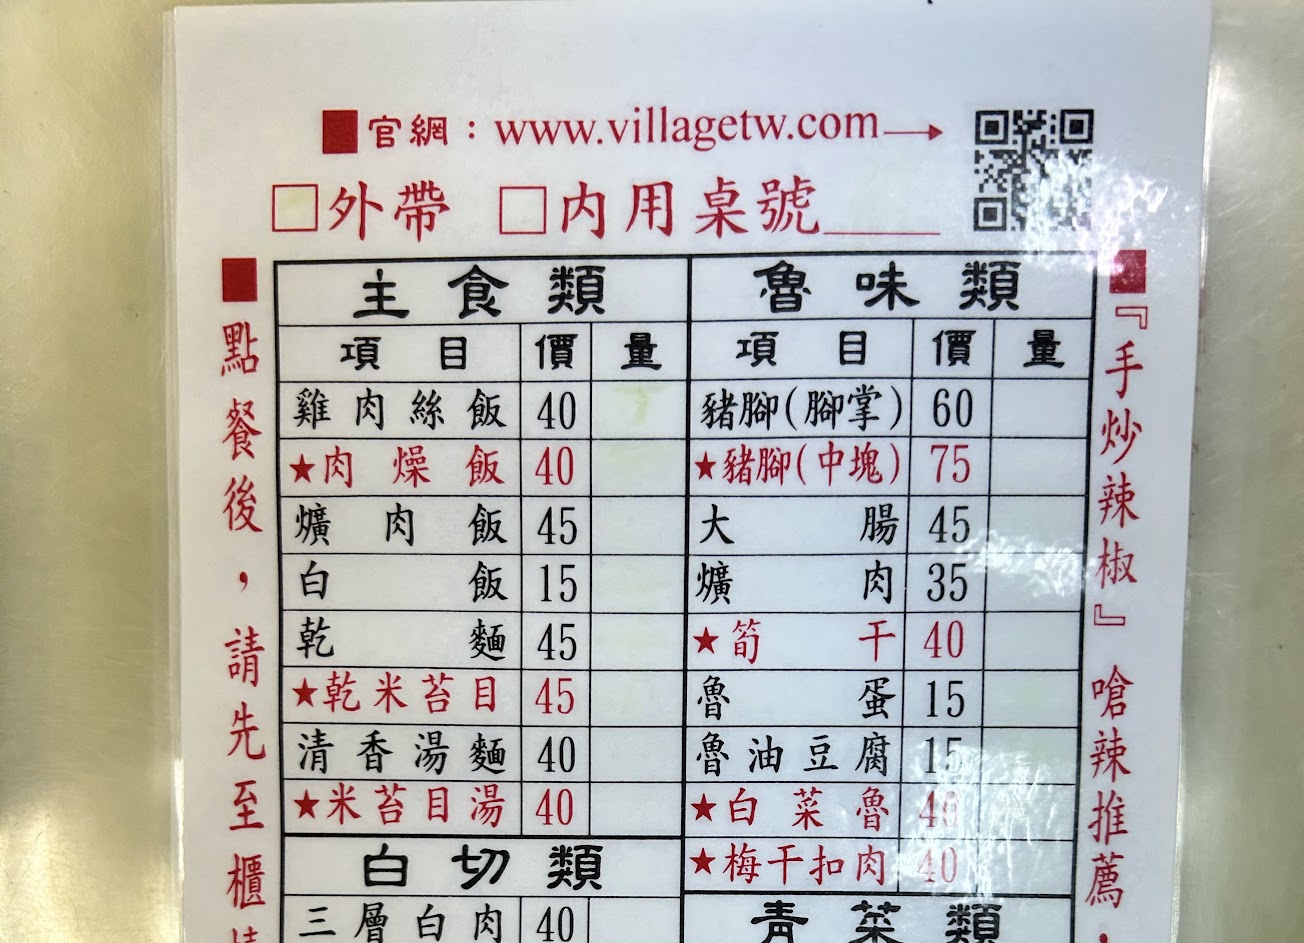 ■官網：www.villagetw.com→
□外帶 □內用桌號____
■點餐後，請先至櫃
主食類
項目 價 量
雞肉絲飯 40
★肉燥飯 40
爌肉飯 45
白飯 15
乾麵 45
★乾米苔目 45
清香湯麵 40
★米苔目湯 40
白切類
三層白肉 40
魯味類
項目 價 量
豬腳(腳掌) 60
★豬腳(中塊) 75
大腸 45
爌肉 35
★筍干 40
魯蛋 15
魯油豆腐 15
★白菜魯 40
★梅干扣肉 40
青菜類
■『手炒辣椒』嗆辣推薦，